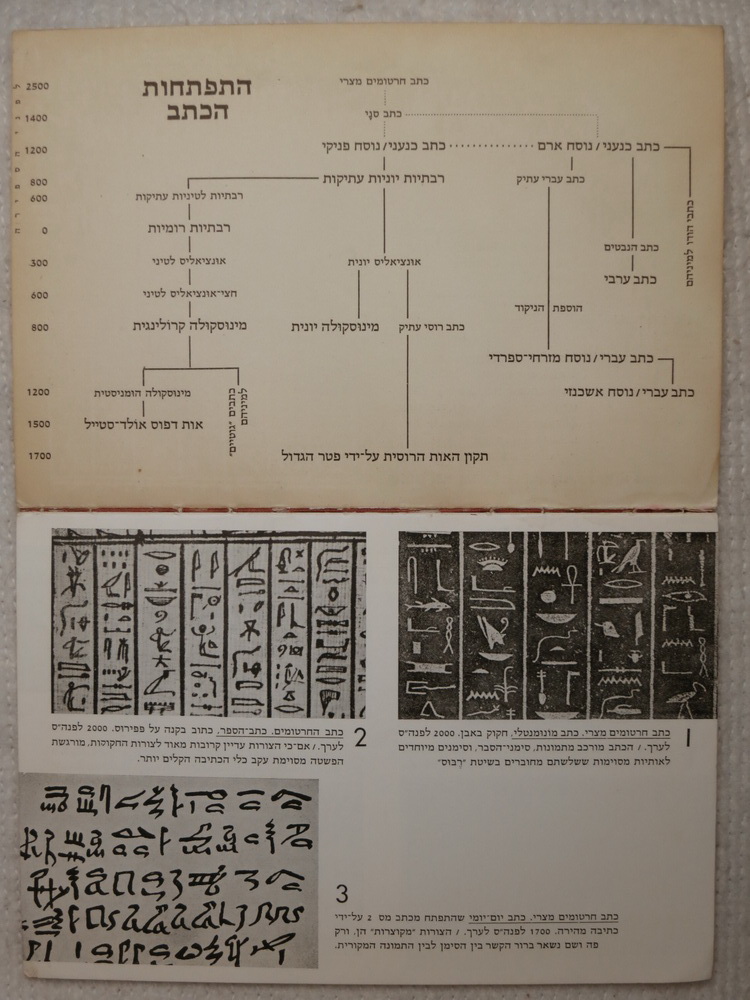 התפתחות
הכתב
לפני הספירה
2500
1400
1200
800
600
0
300
600
800
1200
1500
1700
כתב חרטומים מצרי
כתב סני
כתב כנעני/נוסח ארם
כתב כנעני/נוסח פניקי
כתב עברי עתיק
רבתיות יוניות עתיקות
רבתיות לטיניות עתיקות
רבתיות רומיות
כתבי הודו למיניהם
כתב הנבטים
כתב ערבי
אונציאליס יונית
אונציאליס לטיני
חצי־אונציאליס לטיני
הוספת הניקוד
כתב רוסי עתיק
מינוסקולה יונית
מינוסקולה קרולינגית
כתב עברי/נוסח מזרחי־ספרדי
כתב עברי/נוסח אשכנזי
מינוסקולה הומניסטית
כתבים "גוטיים"
למיניהם
אות דפוס אולד־סטייל
תקון האות הרוסית על־ידי פטר הגדול
1
כתב חרטומים מצרי. כתב מונומנטלי, חקוק באבן. 2000 לפנה״ס
לערך. / הכתב מורכב מתמונות, סימני־הסבר, וסימנים מיוחדים
לאותיות מסוימות ששלשתם מחוברים בשיטת "רבוס"
2
כתב החרטומים. כתב־הספר, כתוב בקנה על פפירוס. 2000 לפנה״ס
לערך. / אם־כי הצורות עדיין קרובות מאוד לצורות החקוקות, מורגשת
הפשטה מסוימת עקב כלי הכתיבה הקלים יותר.
3
כתב חרטומים מצרי. כתב יום־יומי שהתפתח מכתב מס 2 על־ידי
כתיבה מהירה. 1700 לפנה״ס לערך. / הצורות "מקוצרות" הן, ורק
פה ושם נשאר ברור הקשר בין הסימן לבין התמונה המקורית.